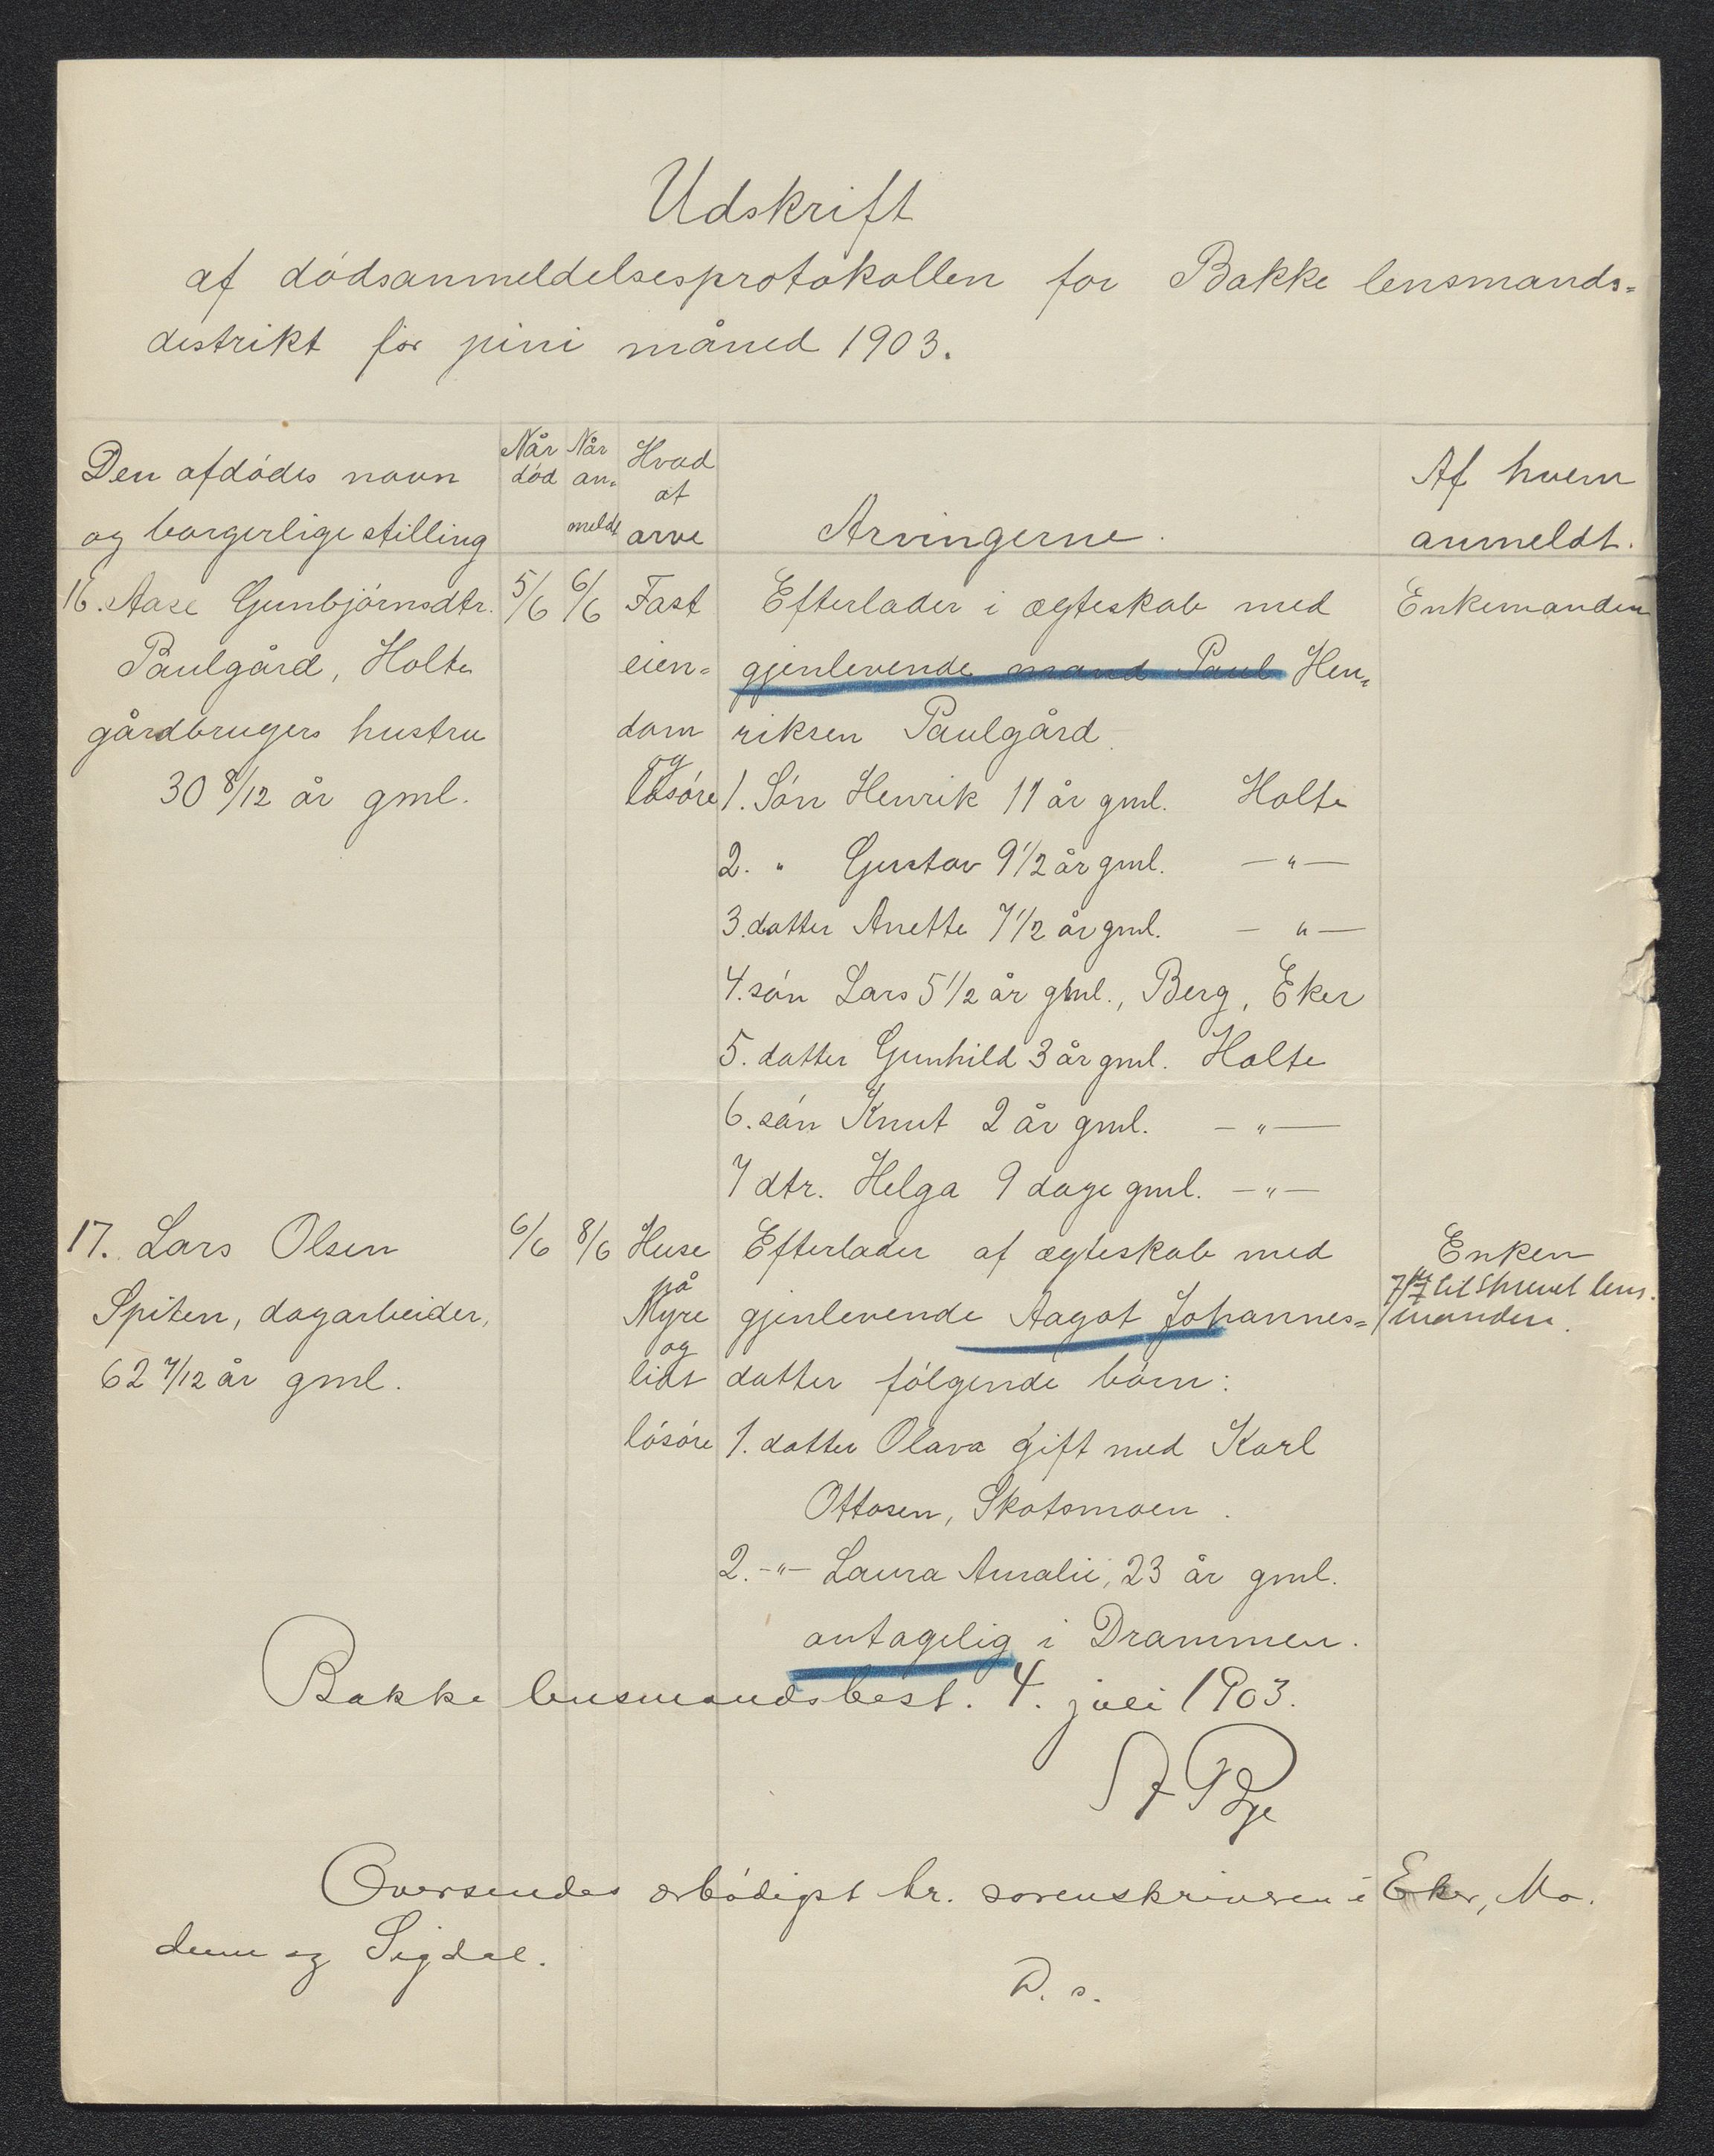 Udskrift
af dödsanmeldelsesprotokollen for Bakke lensmands=
distrikt for juni måned 1903.
Den afdödes navn
og borgerlige stilling
Når
död
Når
an=
meldt
Hvad
at
arve
Arvingerne.
Af hvem
anmeldt.
16. Aase Gunbjörnsdtr.
Paulgård, Holte
gårdbrugers hustru
30 8/12 år gml.
5/6
6/6
Fast
eien=
dom
og
lösöre
Efterlader i ægteskab med
gjenlevende mand Paul Hen=
riksen Paulgård
1. Sön Henrik 11 år gml. Holte
2. " Gustav 9 1/2 år gml. —"—
3. datter Anette 7 1/2 år gml. — "—
4. sön Lars 5 1/2 år gml., Berg, Eker
5. datter Gunhild 3 år gml. Holte
6. sön Knut 2 år gml. —"—
7 dtr. Helga 9 dage gml. —"—
Enkemanden
17. Lars Olsen
Spiten, dagarbeider,
62 7/12 år gml.
6/6
8/6
Huse
på
Myre
og
lidt
lösöre
Efterlader af ægteskab med
gjenlevende Aagot Johannes=
datter fölgende börn:
1. datter Olava gift med Karl
Ottosen, Skotsmoen.
2. —"— Laura Amalie, 23 år gml.
antagelig i Drammen.
Enken
7/7 tilskrevet lens.
manden.
Bakke lensmandsbest. 4. juli 1903.
Oversendes ærbödigst hr. sorenskriveren i Eker, Mo.
dum og Sigdal.
D. s.